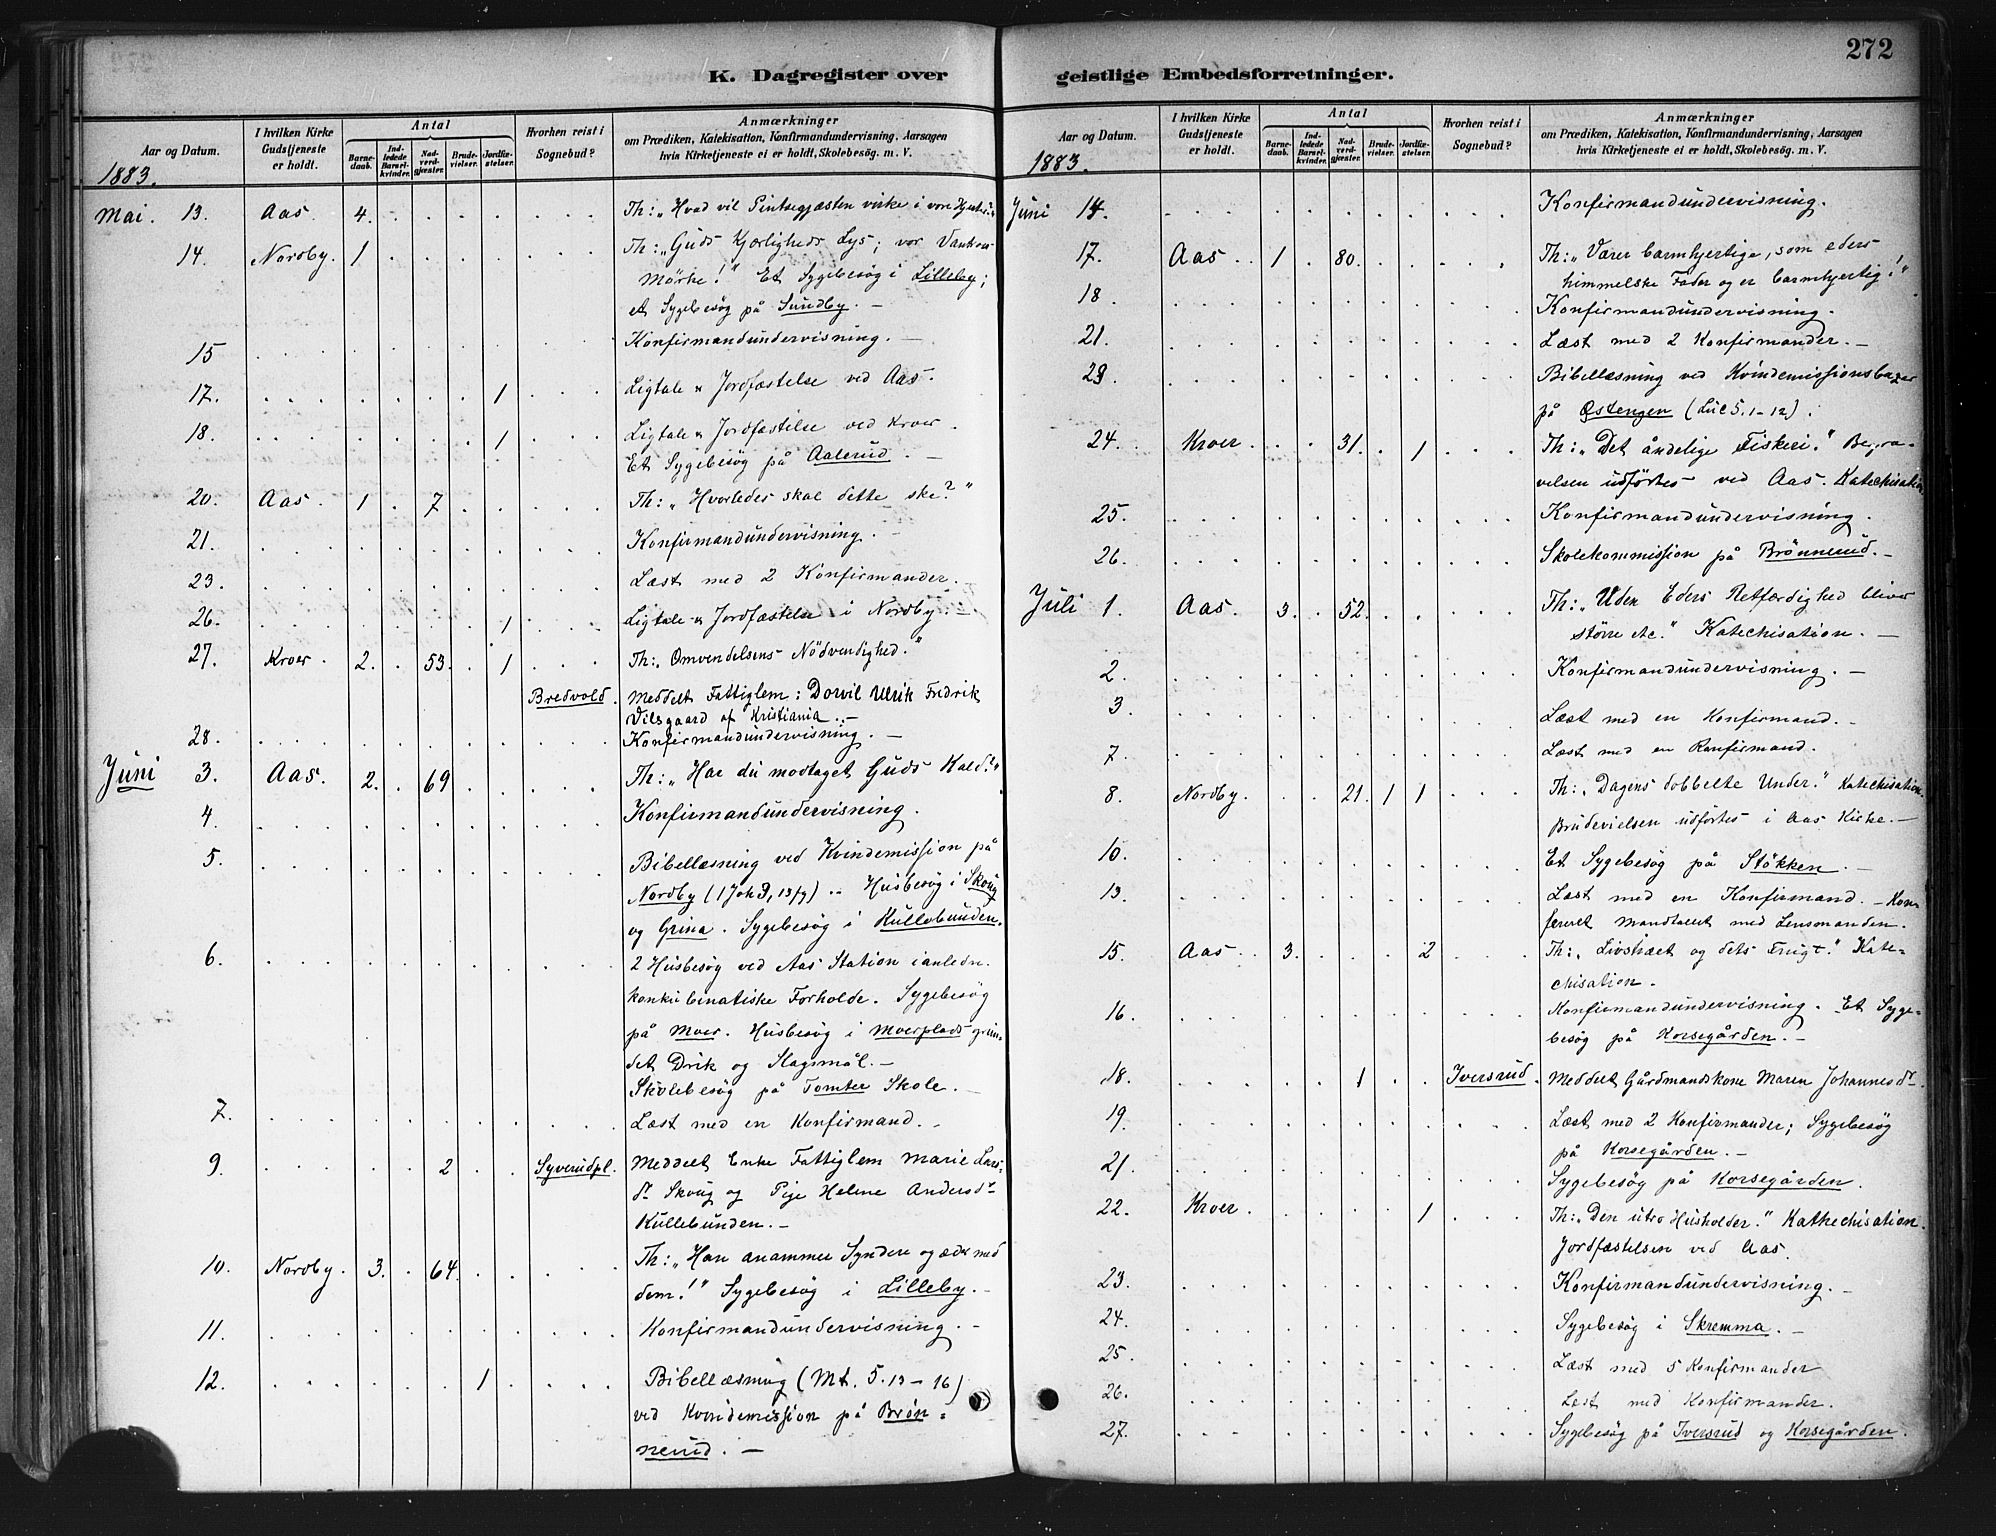 272
K. Dagregister over geistlige Embedsforretninger.
Aar og Datum. I hvilken Kirke Gudstjeneste er holdt. Antal Barnedaab. Indledede Barselkvinder. Nadverdgjæster. Brudevielser. Jordfæstelser. Hvorhen reist i Sognebud? Anmærkninger om Prædiken, Katekisation, Konfirmandundervisning, Aarsagen hvis Kirketjeneste ei er holdt, Skolebesög m. V.
1883.
Mai. 13. Aas. 4. Th: „Hvad vil Pintsegjæsten virke i vore Hjerter"
14. Nordby. 1 Th: „Guds Kjærligheds Lys; vor Vantros
Mörke!" Et Sygebesög i Lilleby;
et Sygebesög på Sundby. –
15 Konfirmandundervisning. –
17. 1 Ligtale & Jordfæstelse ved Aas.
18. 1 Ligtale & Jordfæstelse ved Kroer.
Et Sygebesög på Aalerud. –
20. Aas. 1 7 Th: „Hvorledes skal dette ske?"
21. Konfirmandundervisning. –
23. Læst med 2 Konfirmander.
26. 1 Ligtale & Jordfæstelse i Nordby. –
27. Kroer. 2. 53. 1 Th: „Omvendelsens Nödvendighed."
Bredvold. Meddelt Fattiglem: Dorvil Ulrik Fridrik
Vilsgaard af Kristiania. –
28. Konfirmandundervisning. –
Juni 3. Aas. 2. 69 Th: „Har du modtaget Guds Kald?"
4. Konfirmandundervisning.
5. Bibellæsning ved Kvindemission på
Nordby (1 Joh 3, 13 ff). – Husbesög i Skoug
og Grina. Sygebesög i Kullebunden.
6. 2 Husbesög ved Aas Station i anledn.
konkubinatiske Forholde. Sygebesög
på Moer. Husbesög i Moerplads grun-
det Drik og Slagsmål. –
Skolebesög på Tomter Skole. –
7. Læst med en Konfirmand. –
9. 2 Syverudpl. Meddelt Enke Fattiglem Marie Lars-
dr Skoug og Pige Helene Andersdr
Kullebunden. –
10. Nordby. 3. 64. Th: „Han anammer Syndere og æder med
dem!" Sygebesög i Lilleby. –
11. Konfirmandundervisning. –
12. 1 Bibellæsning (Mt. 5. 13–16)
ved Kvindemission på Brön-
nerud. –
Aar og Datum. I hvilken Kirke Gudstjeneste er holdt. Antal Barnedaab. Indledede Barselkvinder. Nadverdgjæster. Brudevielser. Jordfæstelser. Hvorhen reist i Sognebud? Anmærkninger om Prædiken, Katekisation, Konfirmandundervisning, Aarsagen hvis Kirketjeneste ei er holdt, Skolebesög m. V.
1883.
Juni 14. Konfirmandundervisning.
17. Aas. 1 80. Th: „Værer barmhjertige, som eders
himmelske Fader og er barmhjertig!"
18. Konfirmandundervisning.
21. Læst med 2 Konfirmander. –
23. Bibellæsning ved Kvindemissionsbazar
på Østengen (Luc 5. 1–12).
24. Kroer. 31. 1 Th: „Det åndelige Fiskeri." Begra-
velsen udførtes ved Aas. Katechisation.
25. Konfirmandundervisning.
26. Skolekommission på Brönnerud. –
Juli 1. Aas. 3. 52. Th: „Uden Eders Retfærdighed bliver
större etc." Katechisation. –
2. Konfirmandundervisning. –
3. Læst med en Konfirmand. –
7. Læst med en Konfirmand.
8. Nordby. 21. 1 1 Th: „Dagens dobbelte Under." Katechisation.
Brudevielsen udförtes i Aas Kirke. –
10. Et Sygebesög på Stökken. –
13. Læst med en Konfirmand. – Kon-
fereret Mandtallet med Lensmanden.
15. Aas. 3. 2 Th: „Livstræet og dets Frugt." Kate-
chisation.
16. Konfirmandundervisning. Et Syge-
besög på Korsegården. –
18. 1 Iversrud. Meddelt Gårdmandskone Maren Johannesdr.
19. Læst med 2 Konfirmander; Sygebesög
på Korsegården. –
21. Sygebesög på Korsegården.
22. Kroer. 1 Th: „Den utro Husholder." Kathechisation.
Jordfæstelsen ved Aas.
23. Konfirmandundervisning. –
24. Sygebesög i Skremma. –
25. Læst med 5 Konfirmander
26. Læst med Konfirmander.
27. Sygebesög på Iversrud og Korsegården.